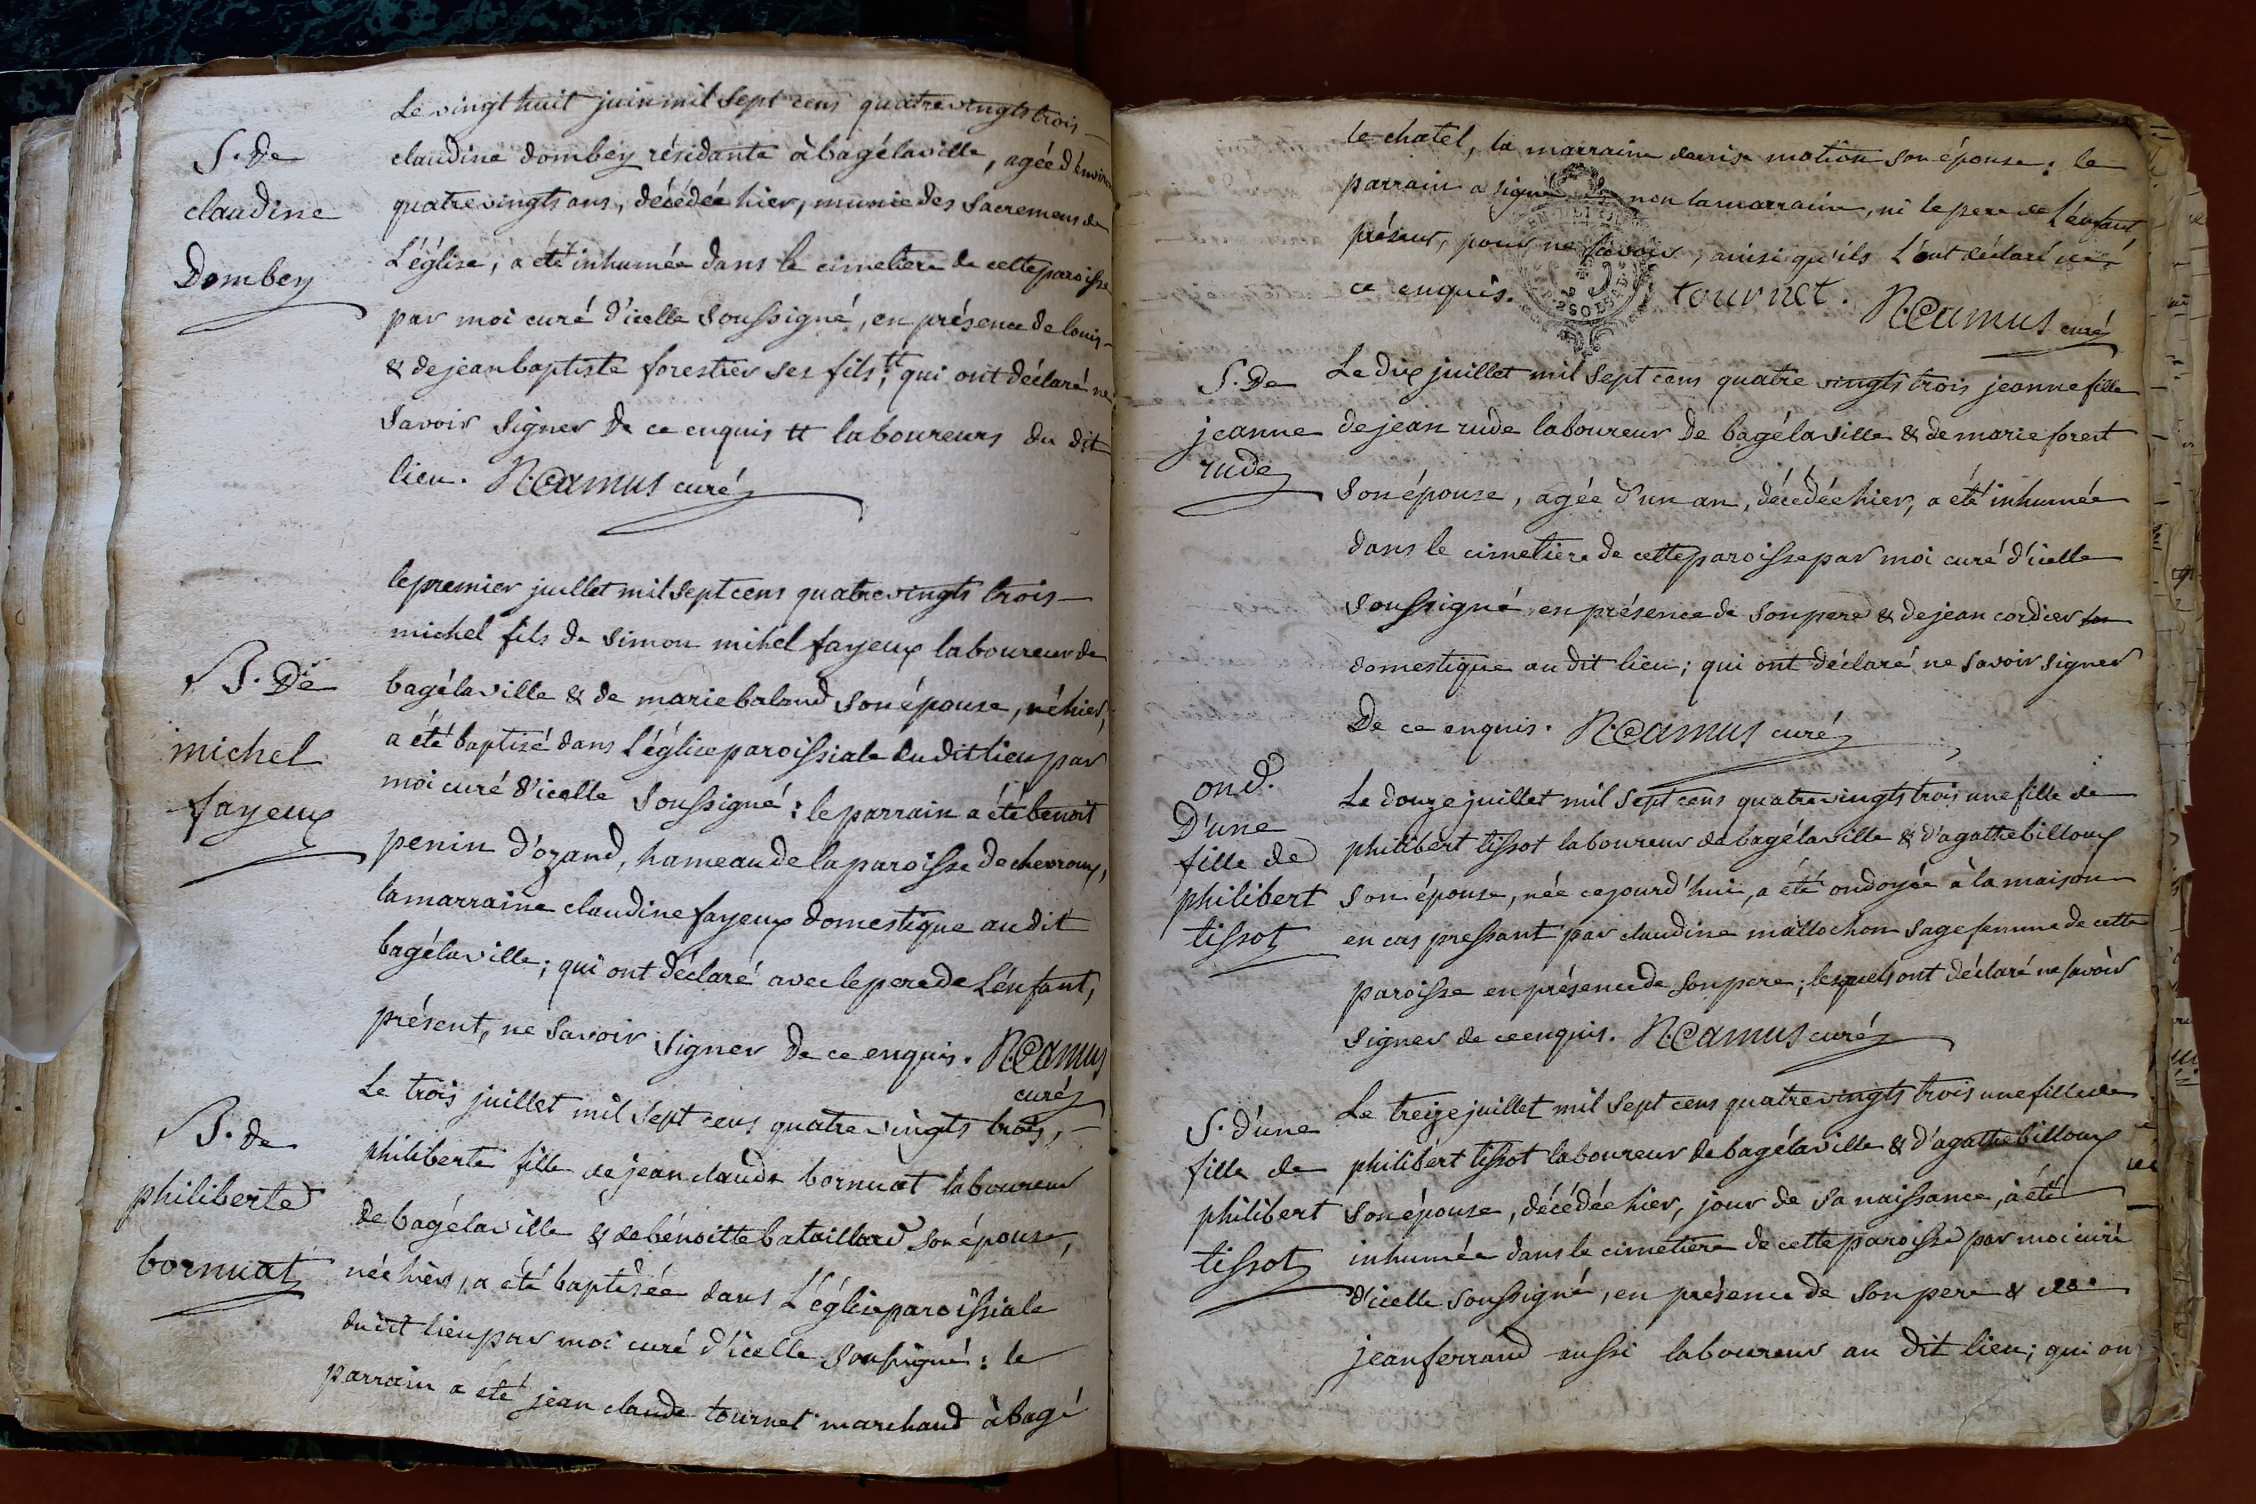 Le vingt huit juin mil Sept cens quatre vingts trois
S. de
claudine
Dombey
claudine dombey résidante à bagélaville, agée d'environ
quatre vingts ans, décédée hier, munie des Sacremens de
L'église, a été inhumée dans le cimetiere de cette paroisse
par moi curé d'icelle Soussigné, en présence de louis
& de jean baptiste forestier ses fils, tt qui ont déclaré ne
Savoir Signer de ce enquis tt laboureurs du dit
lieu. N. Camus curé
le premier juillet mil Sept cens quatre vingts trois
B. De
michel
fayeux
michel fils de Simon mihel fayeux laboureur de
bagélaville & de marie baland Son épouse, né hier,
a été baptizé dans L'église paroissiale du dit lieu par
moi curé d'icelle Soussigné : le parrain a été benoit
penin d'ozand, hameau de la paroisse de chevroux,
la marraine claudine fayeux domestique au dit
bagélaville ; qui ont déclaré avec le pere de L'enfant,
présent, ne Savoir Signer de ce enquis. N. Camus
curé
Le trois juillet mil Sept cens quatre vingts trois,
B. de
philiberte
bornuat
philiberte fille de jean claude bornuat laboureur
de bagélaville & de bénoitte bataillard Son épouse,
née hier, a été baptisée dans L'église paroissiale
du dit lieu par moi curé d'icelle Soussigné : le
parrain a été jean claude tournet marchand à bagé
le chatel, la marraine denise motion Son épouse : le
parrain a signé non la marraine, ni le pere de L'enfant
présent, pour ne Savoir, ainsi qu'ils L'ont déclaré de
ce enquis. tournet. N. Camus curé
S. De
jeanne
rude
Le dix juillet mil Sept cens quatre vingts trois jeanne fille
de jean rude laboureur de bagélaville & de marie forest
Son épouse, agée d'un an, décédée hier, a été inhumée
dans le cimetiere de cette paroisse par moi curé d'icelle
Soussigné en présence de Son pere & de jean cordier
domestique au dit lieu ; qui ont déclaré ne Savoir Signer
De ce enquis. N. Camus curé
ond.
D'une
fille de
philibert
tissot
Le douze juillet mil Sept cens quatre vingts trois une fille de
philibert tissot laboureur de bagélaville & d'agathe billoux
Son épouse, née cejourd'hui, a été ondoyée à la maison
en cas pressant par claudine mallochon Sage femme de cette
paroisse en présence de Son pere ; lesquels ont déclaré ne Savoir
Signer de ce enquis. N. Camus curé
S. d'une
fille de
philibert
tissot
Le treize juillet mil Sept cens quatre vingts trois une fille de
philibert tissot laboureur de bagélaville & d'agathe billoux
Son épouse, décédée hier, jour de Sa naissance, a été
inhumée dans le cimetiere de cette paroisse par moi curé
d'icelle Soussigné, en présence de Son pere & de
jean ferrand aussi laboureur au dit lieu ; qui on